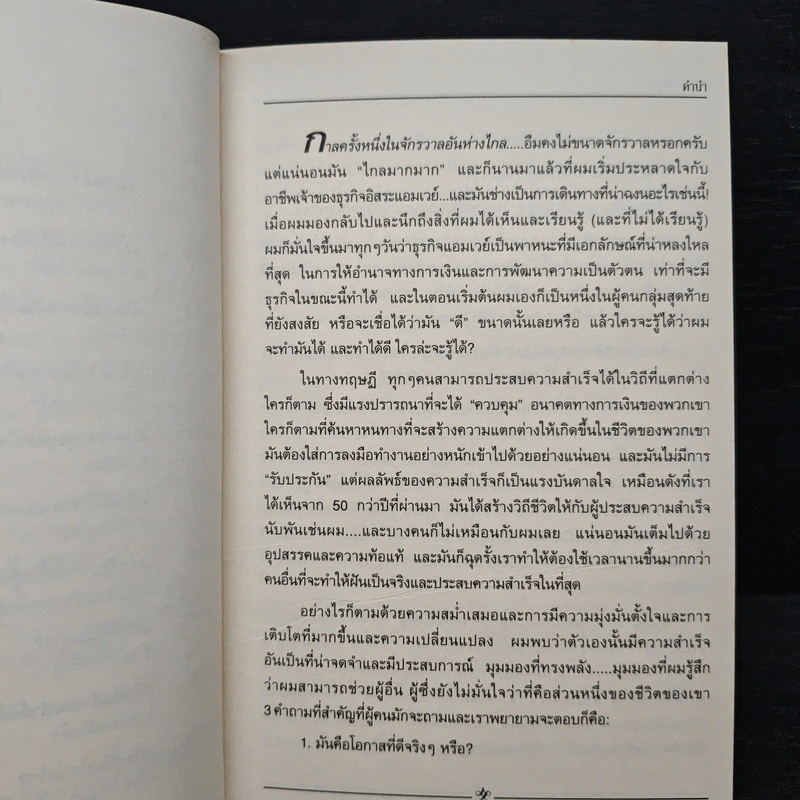 คำนำ
กาลครั้งหนึ่งในจักรวาลอันห่างไกล.....อืมคงไม่ขนาดจักรวาลหรอกครับ
แต่แน่นอนมัน "ไกลมากมาก" และก็นานมาแล้วที่ผมเริ่มประหลาดใจกับ
อาชีพเจ้าของธุรกิจอิสระแอมเวย์...และมันช่างเป็นการเดินทางที่น่าฉงนอะไรเช่นนี้!
เมื่อผมมองกลับไปและนึกถึงสิ่งที่ผมได้เห็นและเรียนรู้ (และที่ไม่ได้เรียนรู้)
ผมก็มั่นใจขึ้นมาทุกๆวันว่าธุรกิจแอมเวย์เป็นพาหนะที่มีเอกลักษณ์ที่น่าหลงใหล
ที่สุด ในการให้อำนาจทางการเงินและการพัฒนาความเป็นตัวตน เท่าที่จะมี
ธุรกิจในขณะนี้ทำได้ และในตอนเริ่มต้นผมเองก็เป็นหนึ่งในผู้คนกลุ่มสุดท้าย
ที่ยังสงสัย หรือจะเชื่อได้ว่ามัน "ดี" ขนาดนั้นเลยหรือ แล้วใครจะรู้ได้ว่าผม
จะทำมันได้ และทำได้ดี ใครล่ะจะรู้ได้?
ในทางทฤษฎี ทุกๆคนสามารถประสบความสำเร็จได้ในวิถีที่แตกต่าง
ใครก็ตาม ซึ่งมีแรงปรารถนาที่จะได้ "ควบคุม" อนาคตทางการเงินของพวกเขา
ใครก็ตามที่ค้นหาหนทางที่จะสร้างความแตกต่างให้เกิดขึ้นในชีวิตของพวกเขา
มันต้องใส่การลงมือทำงานอย่างหนักเข้าไปด้วยอย่างแน่นอน และมันไม่มีการ
"รับประกัน" แต่ผลลัพธ์ของความสำเร็จก็เป็นแรงบันดาลใจ เหมือนดังที่เรา
ได้เห็นจาก 50 กว่าปีที่ผ่านมา มันได้สร้างวิถีชีวิตให้กับผู้ประสบความสำเร็จ
นับพันเช่นผม....และบางคนก็ไม่เหมือนกับผมเลย แน่นอนมันเต็มไปด้วย
อุปสรรคและความท้อแท้ และมันก็ฉุดรั้งเราทำให้ต้องใช้เวลานานขึ้นมากกว่า
คนอื่นที่จะทำให้ฝันเป็นจริงและประสบความสำเร็จในที่สุด
อย่างไรก็ตามด้วยความสม่ำเสมอและการมีความมุ่งมั่นตั้งใจและการ
เติบโตที่มากขึ้นและความเปลี่ยนแปลง ผมพบว่าตัวเองนั้นมีความสำเร็จ
อันเป็นที่น่าจดจำและมีประสบการณ์ มุมมองที่ทรงพลัง.....มุมมองที่ผมรู้สึก
ว่าผมสามารถช่วยผู้อื่น ผู้ซึ่งยังไม่มั่นใจว่าที่คือส่วนหนึ่งของชีวิตของเขา
3 คำถามที่สำคัญที่ผู้คนมักจะถามและเราพยายามจะตอบก็คือ:
1. มันคือโอกาสที่ดีจริงๆ หรือ?